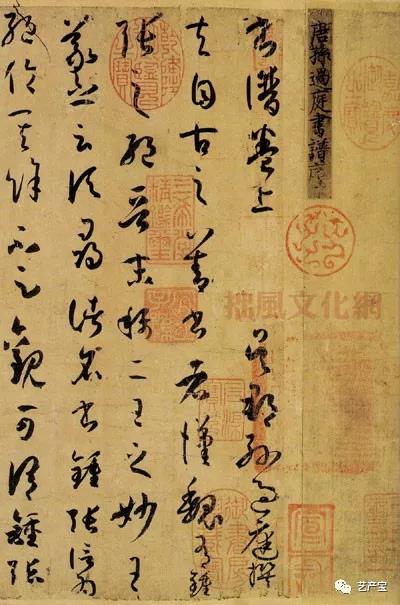 唐孫過庭書譜序
書譜卷上 吳郡孫過庭撰
夫自古之善書者漢魏有鍾
張之絕晉末稱二王之妙王
羲之云頃尋諸名書鍾張信為
絕倫其餘不足觀可謂鍾張
三希堂精鑑璽
拙風文化網
艺产宝